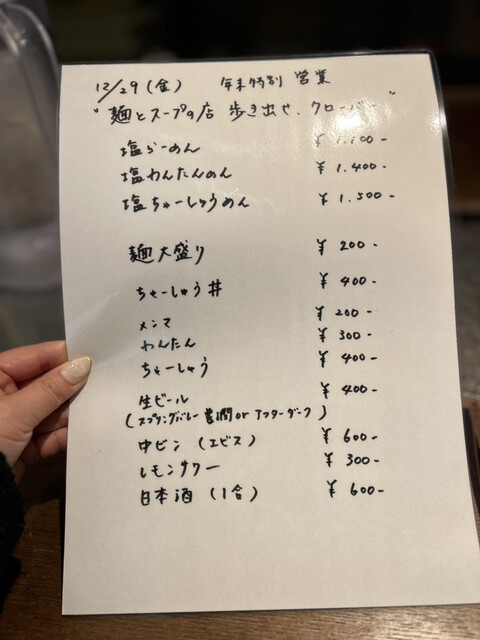 12/29(金) 年末特別 営業
"麺とスープの店 歩き出せ、クローバー"
塩らーめん ¥ 1.100-
塩わんたんめん ¥ 1.400-
塩ちゃーしゅうめん ¥ 1.500-
麺大盛り ¥ 200-
ちゃーしゅう丼 ¥ 400-
メンマ ¥ 200-
わんたん ¥ 300-
ちゃーしゅう ¥ 400-
生ビール ¥ 400-
(スプリングバレー 豊潤 or アフターダーク)
中ビン (エビス) ¥ 600-
レモンサワー ¥ 300-
日本酒 (1合) ¥ 600-